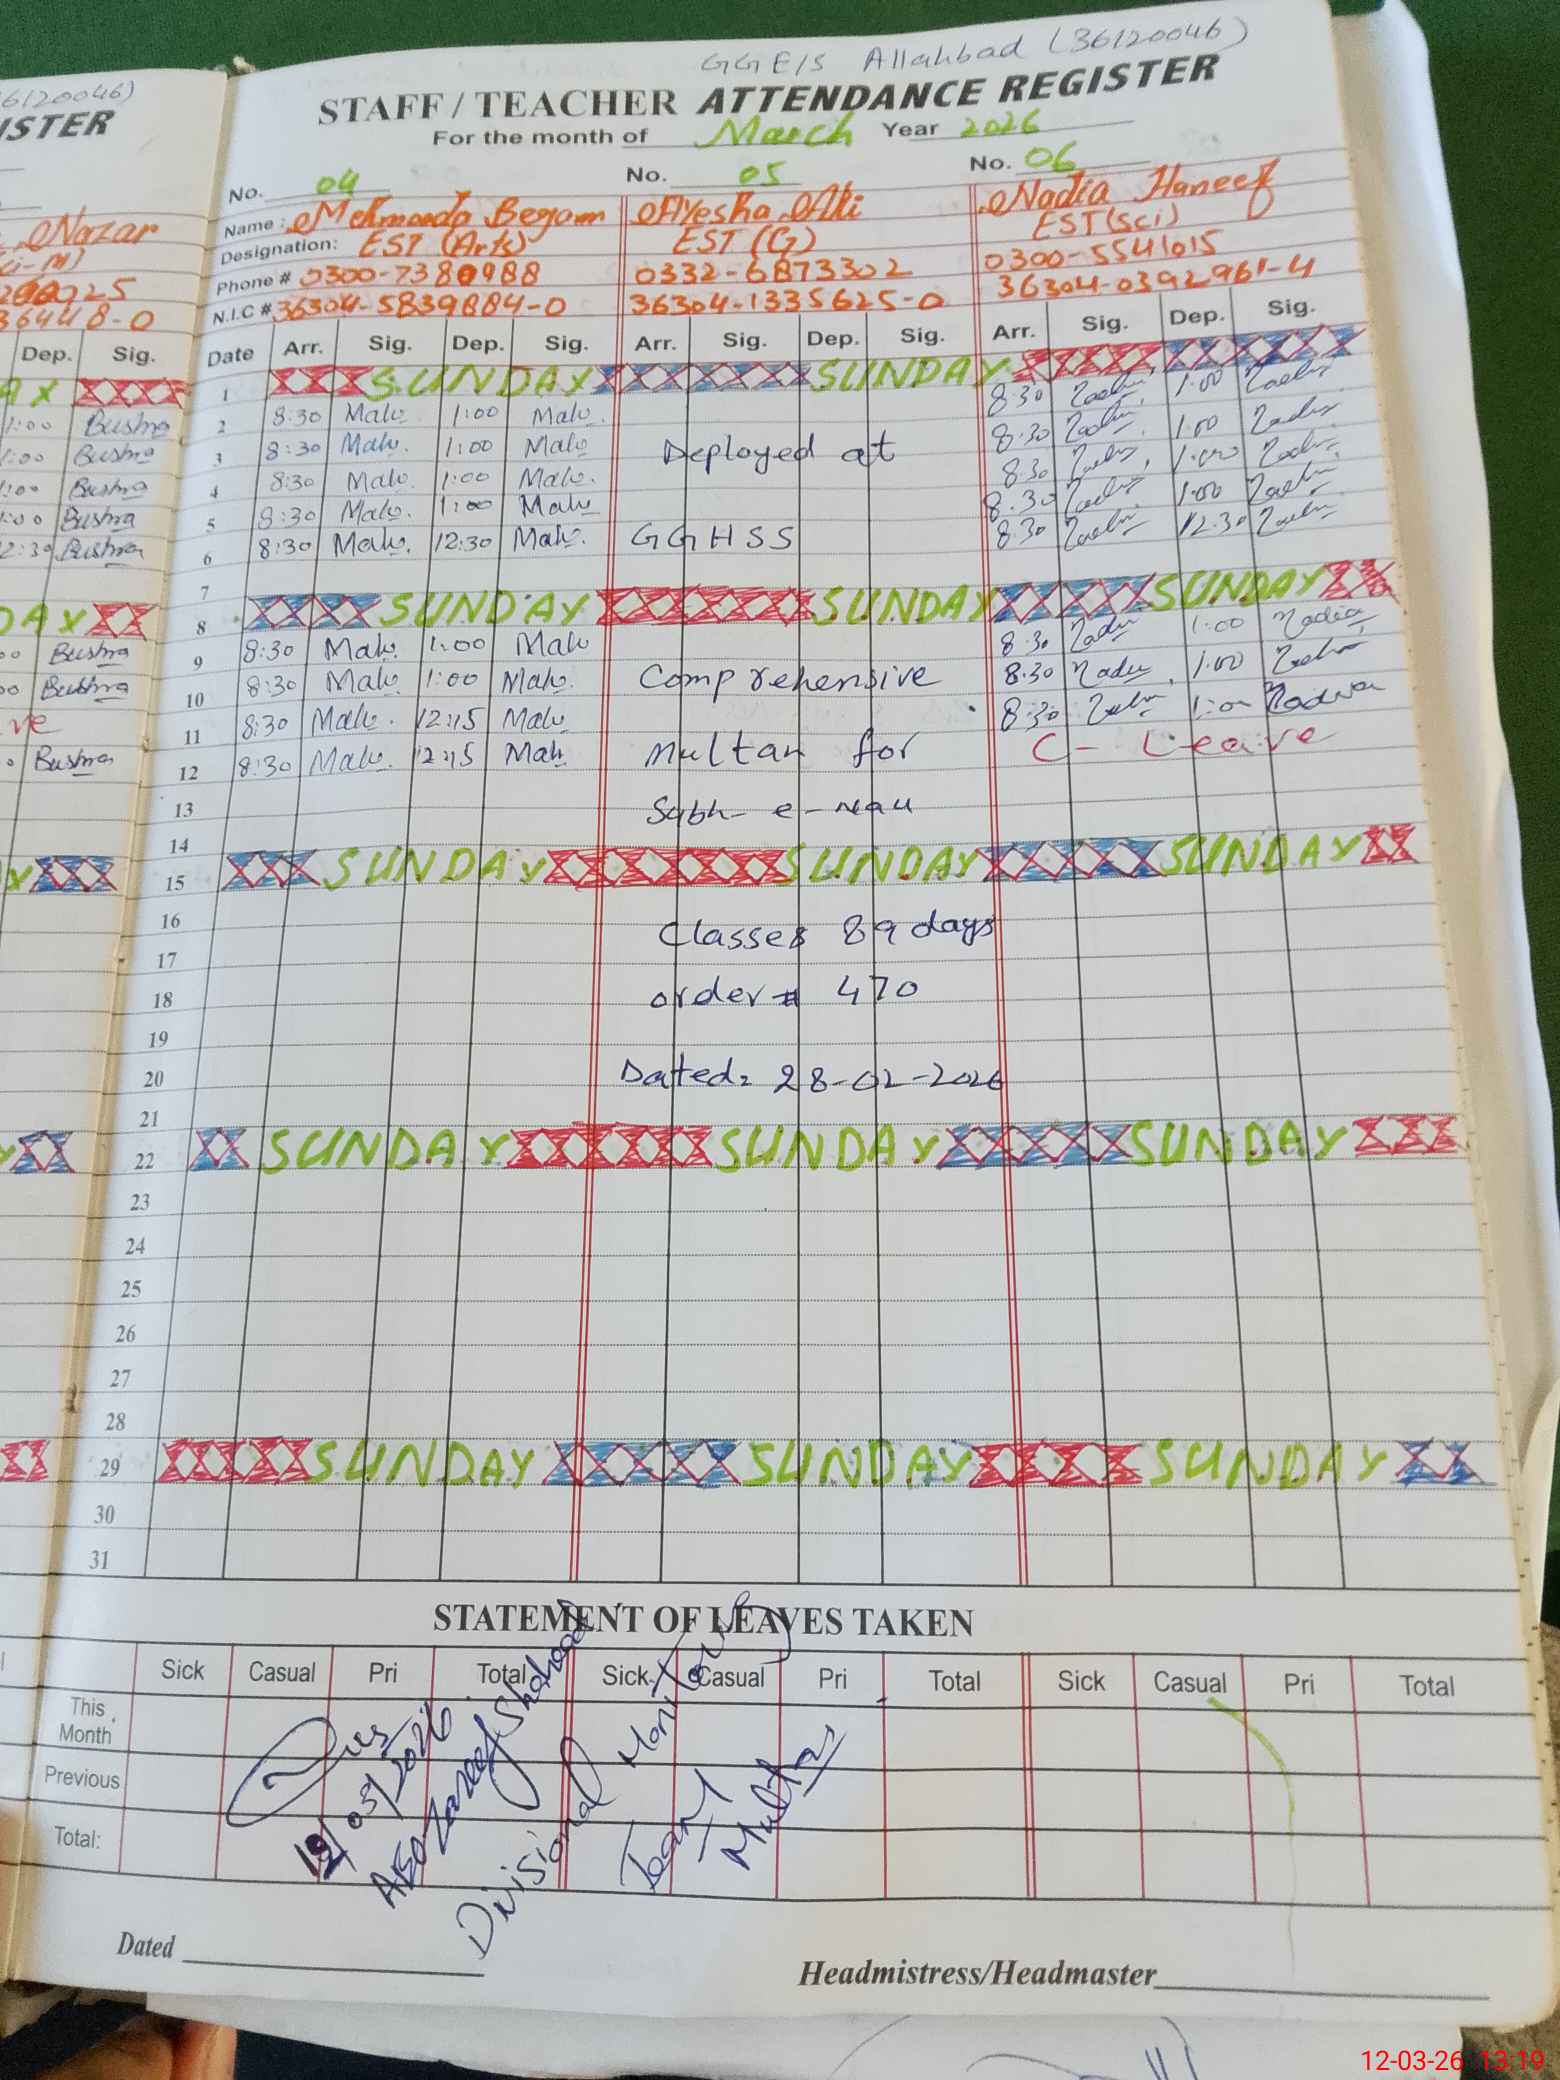 GGE/S Allahbad (36120046)
6120046)
STAFF / TEACHER ATTENDANCE REGISTER
ISTER
For the month of March Year 2026
No. 04 No. 05 No. 06
Name : Mehmooda Begam Ayesha Ali Nadia Haneef
Nazar
Designation: EST (Arts) EST (G) EST (Sci)
Phone # 0300-7380988 0332-6873302 0300-5541015
N.I.C # 36304-5839884-0 36304-1335625-0 36304-0392961-4
36448-0
Date Arr. Sig. Dep. Sig. Arr. Sig. Dep. Sig. Arr. Sig. Dep. Sig.
Dep. Sig.
1 SUNDAY SUNDAY
2 8:30 Mah. 1:00 Mah. 8:30 1:00
3 8:30 Mah. 1:00 Mah. Deployed at 8:30 1:00
4 8:30 Mah. 1:00 Mah. 8:30 1:00
5 8:30 Mah. 1:00 Mah. 8:30 1:00
6 8:30 Mah. 12:30 Mah. GGHSS 8:30 12:30
1:00 Bushra
1:00 Bushra
1:00 Bushra
1:00 Bushra
12:30 Bushra
7
8 SUNDAY SUNDAY SUNDAY
9 8:30 Mah. 1:00 Mah. 8:30 Nadia 1:00 Nadia
10 8:30 Mah. 1:00 Mah. Comprehensive 8:30 Nadia 1:00
11 8:30 Mah. 12:15 Mah. 8:30 1:00 Nadia
12 8:30 Mah. 12:15 Mah. Multan for C - Leave
Bushra
Bushra
ve
Bushra
13 Subh-e-nau
14
15 SUNDAY SUNDAY SUNDAY
16 Classes 89 days
17
18 order # 470
19
20 Dated: 28-02-2026
21
22 SUNDAY SUNDAY SUNDAY
23
24
25
26
27
28
29 SUNDAY SUNDAY SUNDAY
30
31
STATEMENT OF LEAVES TAKEN
Sick Casual Pri Total Sick Casual Pri Total Sick Casual Pri Total
This Month
Previous
Total:
12/03/2026
AEO Zareef Shahzad
Divisional Monitoring
Team
Multan
Dated
Headmistress/Headmaster
12-03-26 13:19